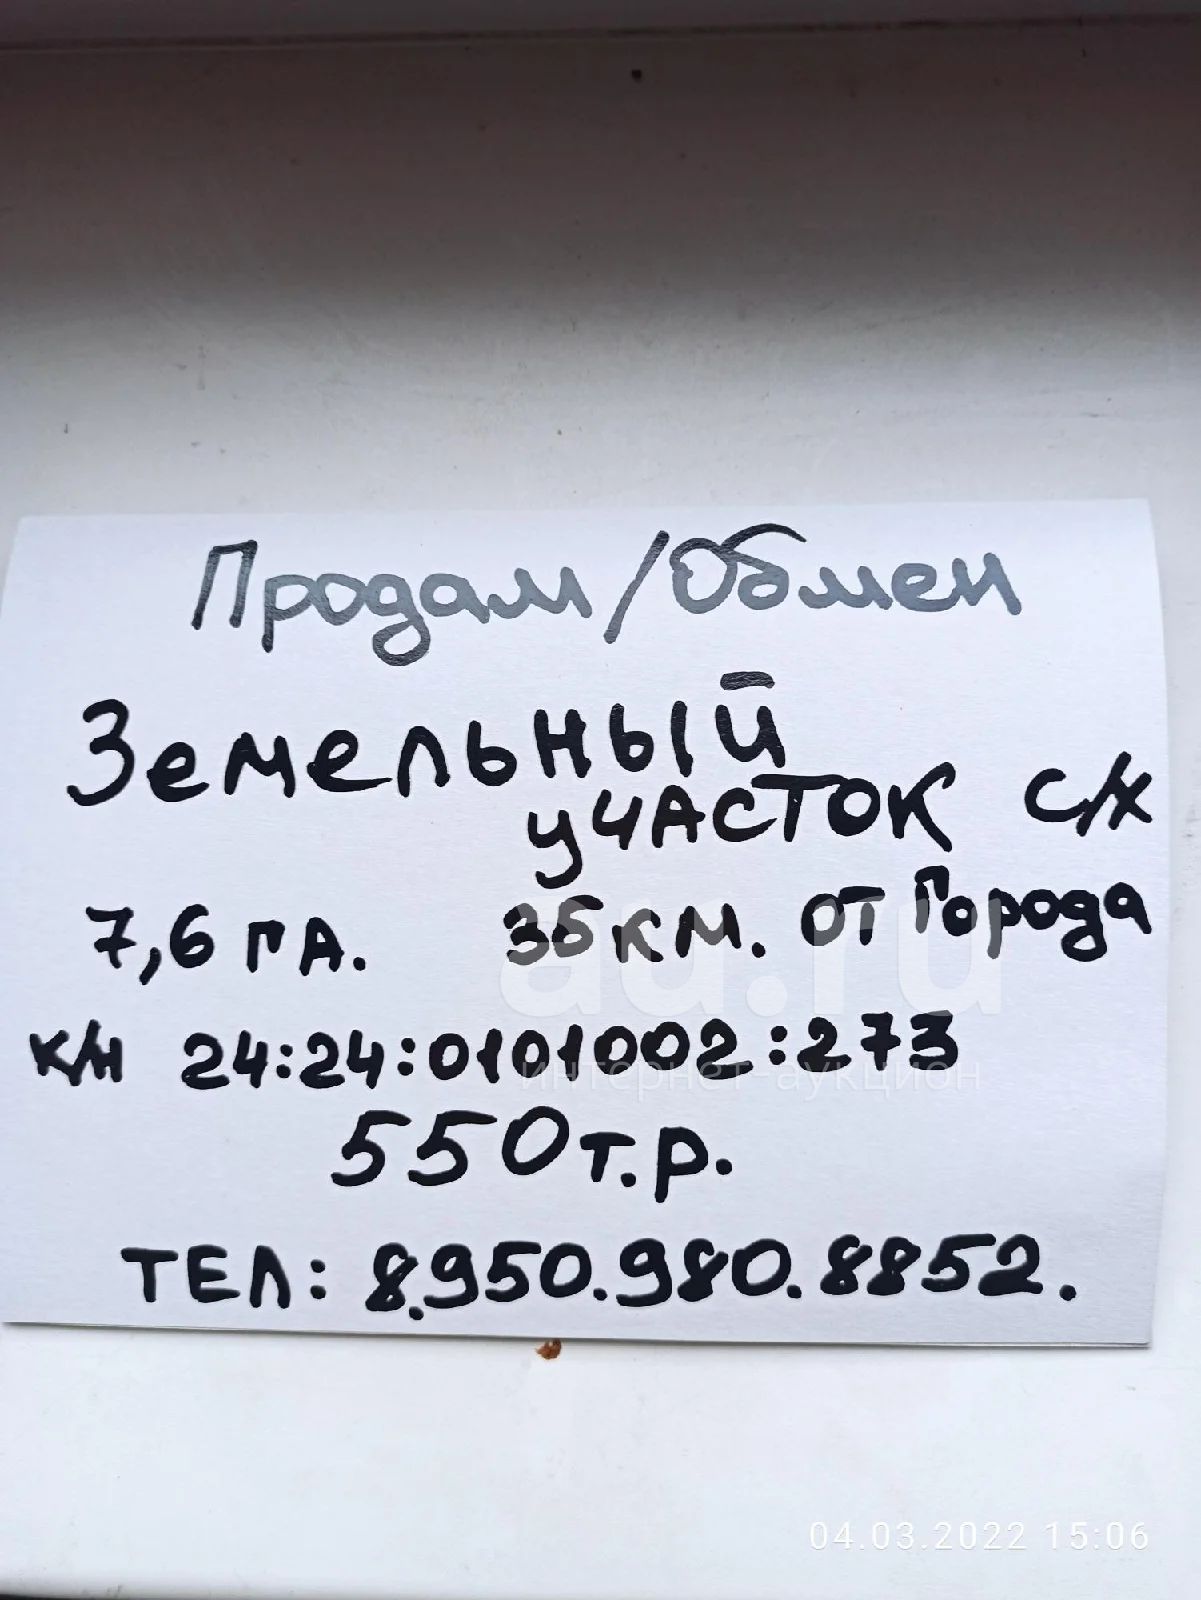 Продам/Обмен
Земельный
участок с/х
7,6 га. 35 км. от города
к/н 24:24:0101002:273
550 т.р.
ТЕЛ: 8.950.980.8852.
au.ru
интернет-аукцион
04.03.2022 15:06